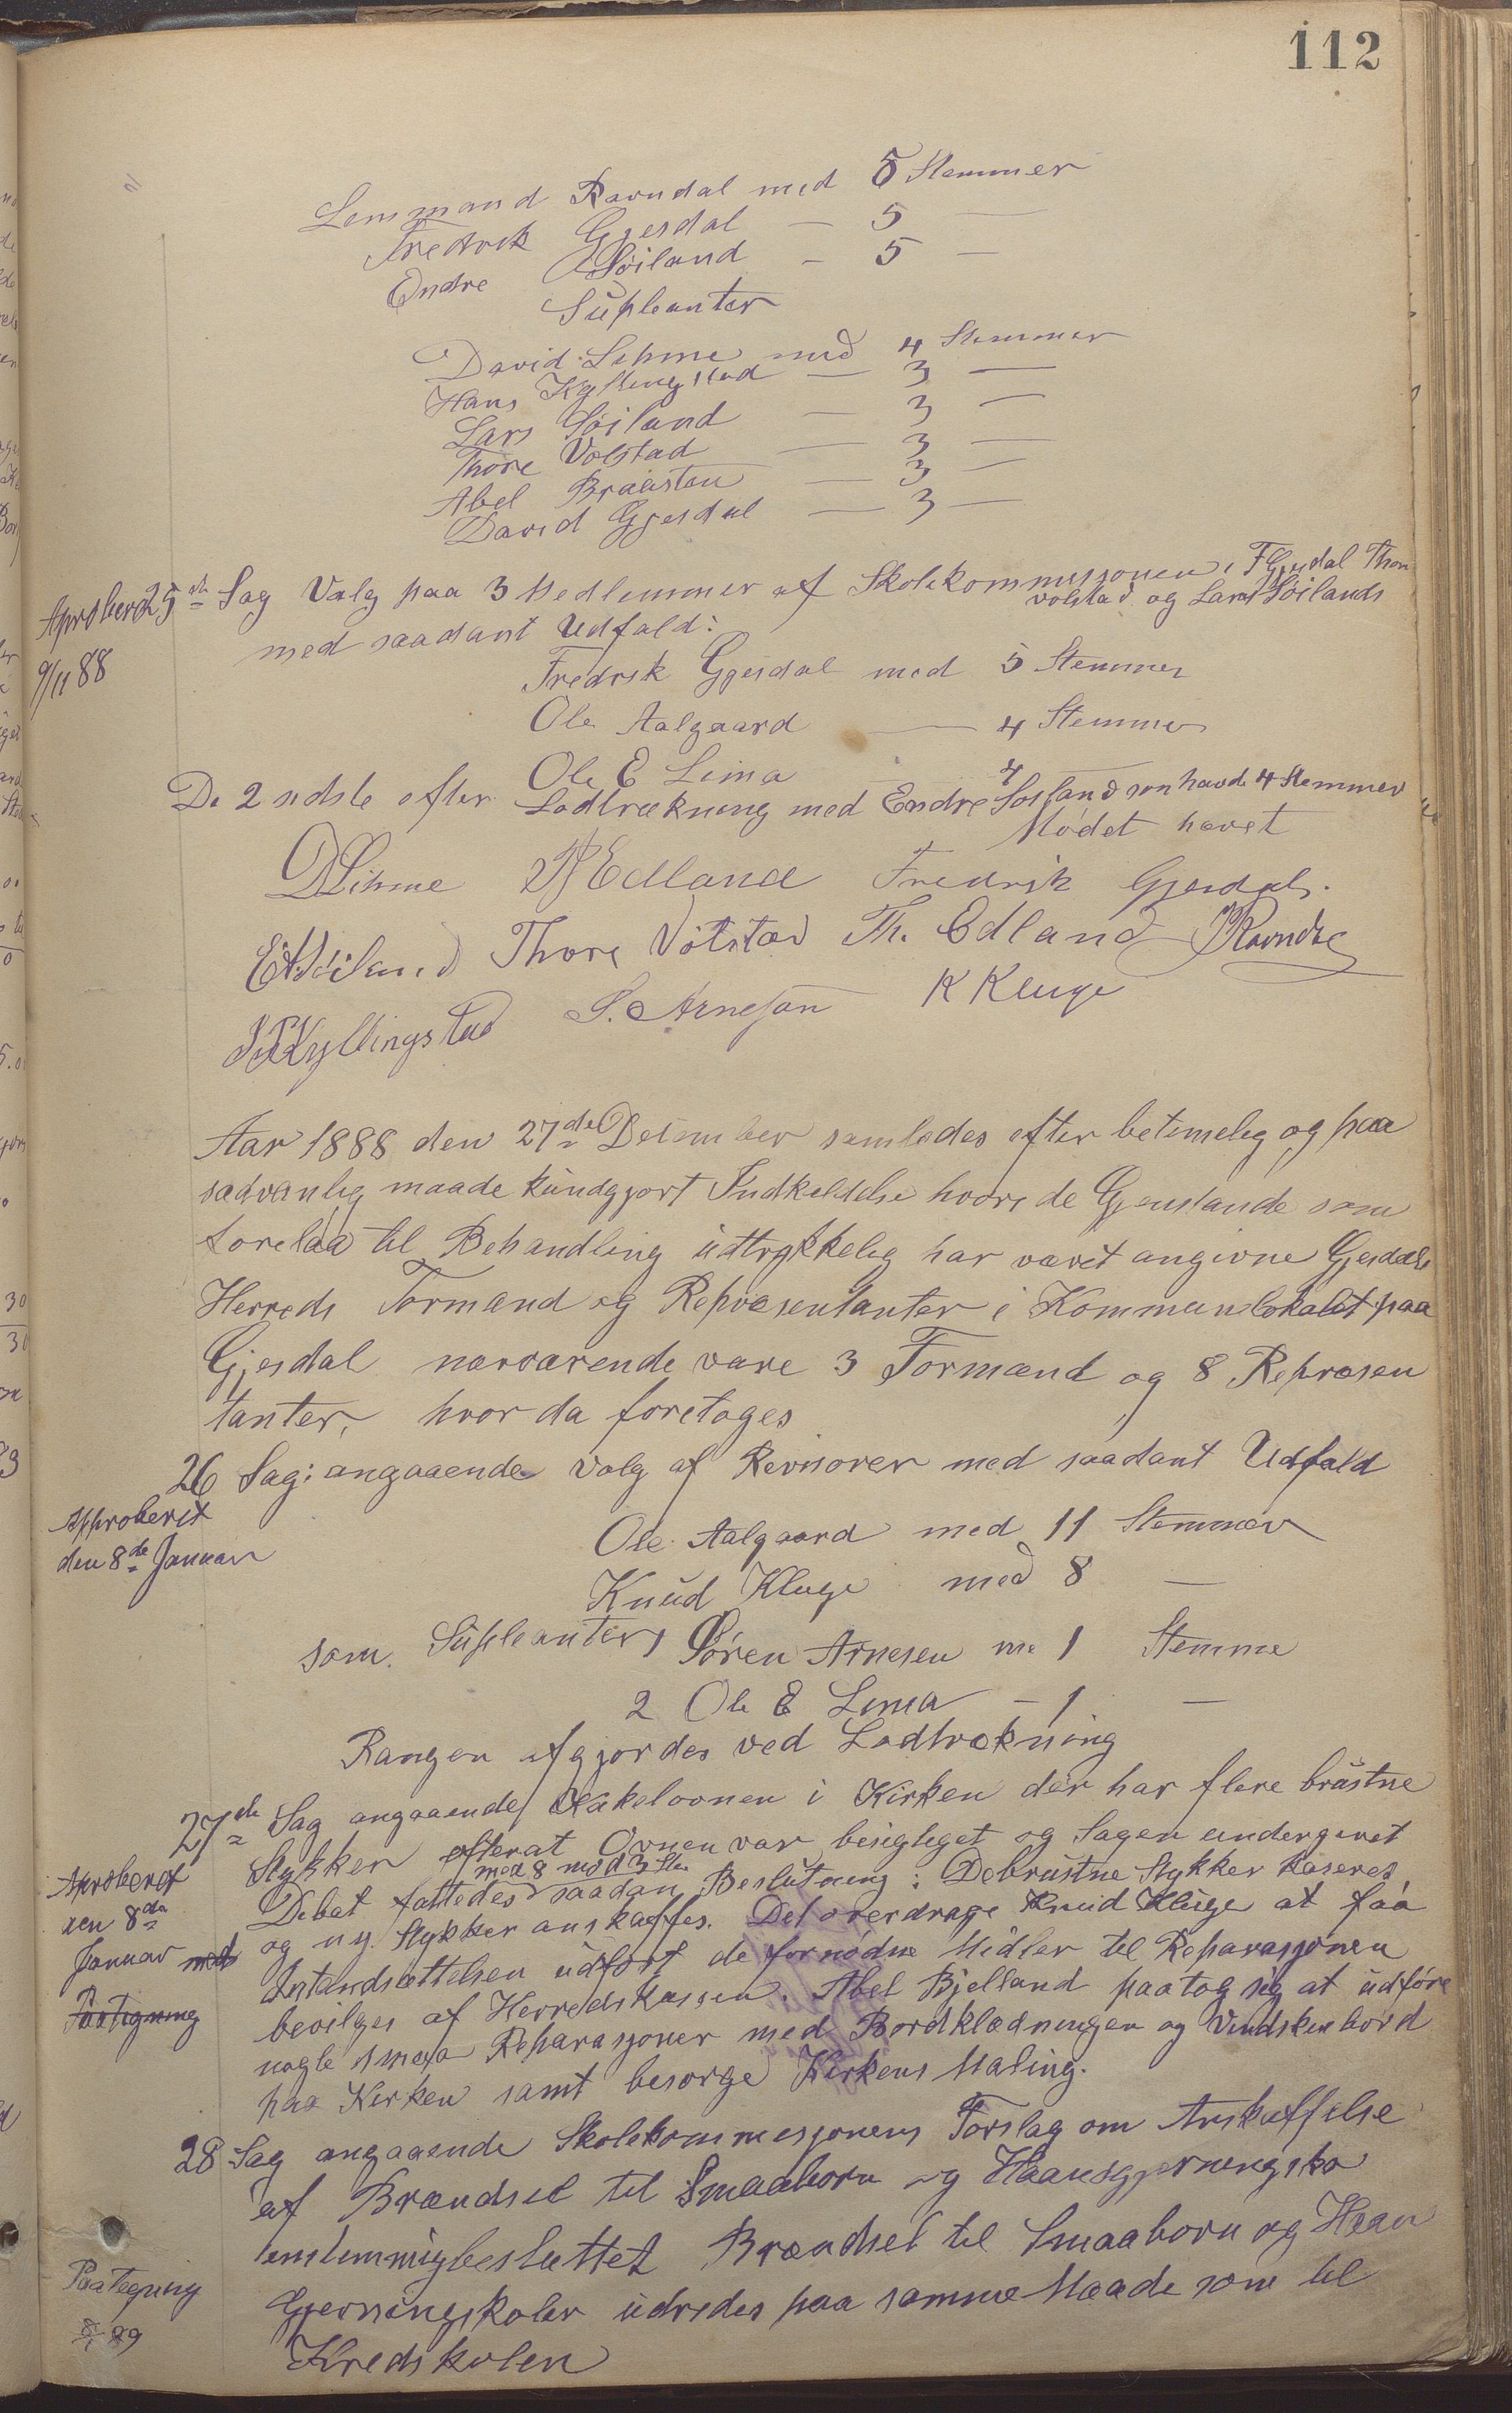 112
Lensmand Ravndal med 5 Stemmer
Fredrik Gjesdal — 5 —
Endre Søiland — 5 —
Supleanter
David Sihme med 4 Stemmer
Hans Kyllingstad — 3 —
Lars Søiland — 3 —
Thore Volstad — 3 —
Abel Braasten — 3 —
David Gjesdal — 3 —
Aproberet 9/11 88
25de Sag Valg paa 3 Medlemmer af Skolekommissionen, F Gjesdal Thor
volstad og Lars Søilands
med saadant Udfald:
Fredrik Gjesdal med 5 Stemmer
Ole Aalgaard — 4 Stemmer
Ole E Lima — 4
De 2 sidste efter Lodtrækning med Endre Søiland som havde 4 Stemmer
Mødet hævet
D Sihme Edland Fredrik Gjesdal.
E A Søiland Thore Votstad Th. Edland Ravndal
Kyllingstad S. Arnesen K Kluge
Aar 1888 den 27de December samledes efter betimelig og paa
sædvanlig maade kundgjort Indkaldelse hvori de Gjenstande som
forelaa til Behandling udtrykkelig har været angivne Gjesdals
Herreds Formænd og Repræsentanter i Kommunelokalet paa
Gjesdal nærværende vare 3 Formænd og 8 Repræsen
tanter, hvor da foretoges
26 Sag: angaaende valg af Revisorer med saadant Udfald
Approberet
den 8de Januar
Ole Aalgaard med 11 Stemmer
Knud Kluge med 8 —
som Supleanter 1 Søren Arnesen me 1 Stemme
2 Ole E Lima — 1 —
Rangen afgjordes ved Lodtrækning
27de Sag angaaende Kakelovnen i Kirken der har flere brustne
Stykker efterat Ovnen var besigtiget og Sagen undergivet
Debat fattedes med 8 mod 3 St. saadan Beslutning: De brustne Stykker kaseres
og ny Stykker anskaffes. Det overdrages Knud Kluge at faa
Istandsættelsen udført de fornødne Midler til Reparasjonen
bevilges af Herredskassen. Abel Bjelland paatog sig at udføre
nogle smaa Reparasjoner med Bordklædningen og Vindskeebord
paa Kirken samt besørge Kirkens Maling.
Aproberet
den 8de
Januar med
Paategning
28 Sag angaaende Skolekommesjonens Forslag om Anskaffelse
af Brændsel til Smaaborn og Haandgjerningsko
enstemmigbesluttet Brændsel til Smaaborn og Haan
Gjerningskoler udredes paa samme Maade som til
Kredskolen
Paategning
8/1 89